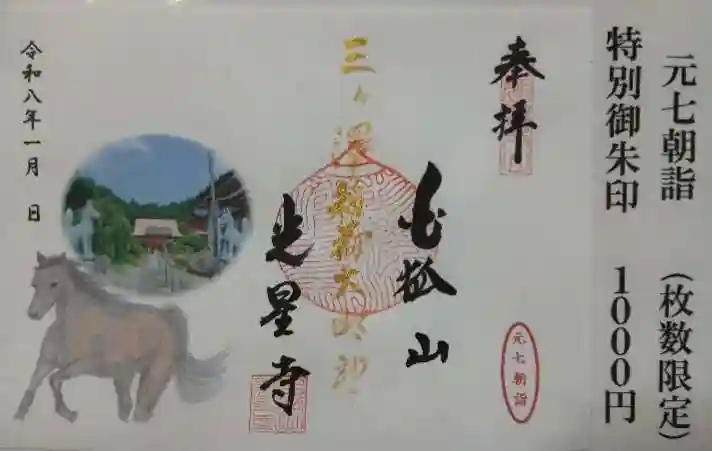 元七朝詣 (枚数限定)
特別御朱印 1000円
奉拝
元七朝詣
白狐山
三ヶ澤稲荷大明神
光星寺
令和八年一月 日